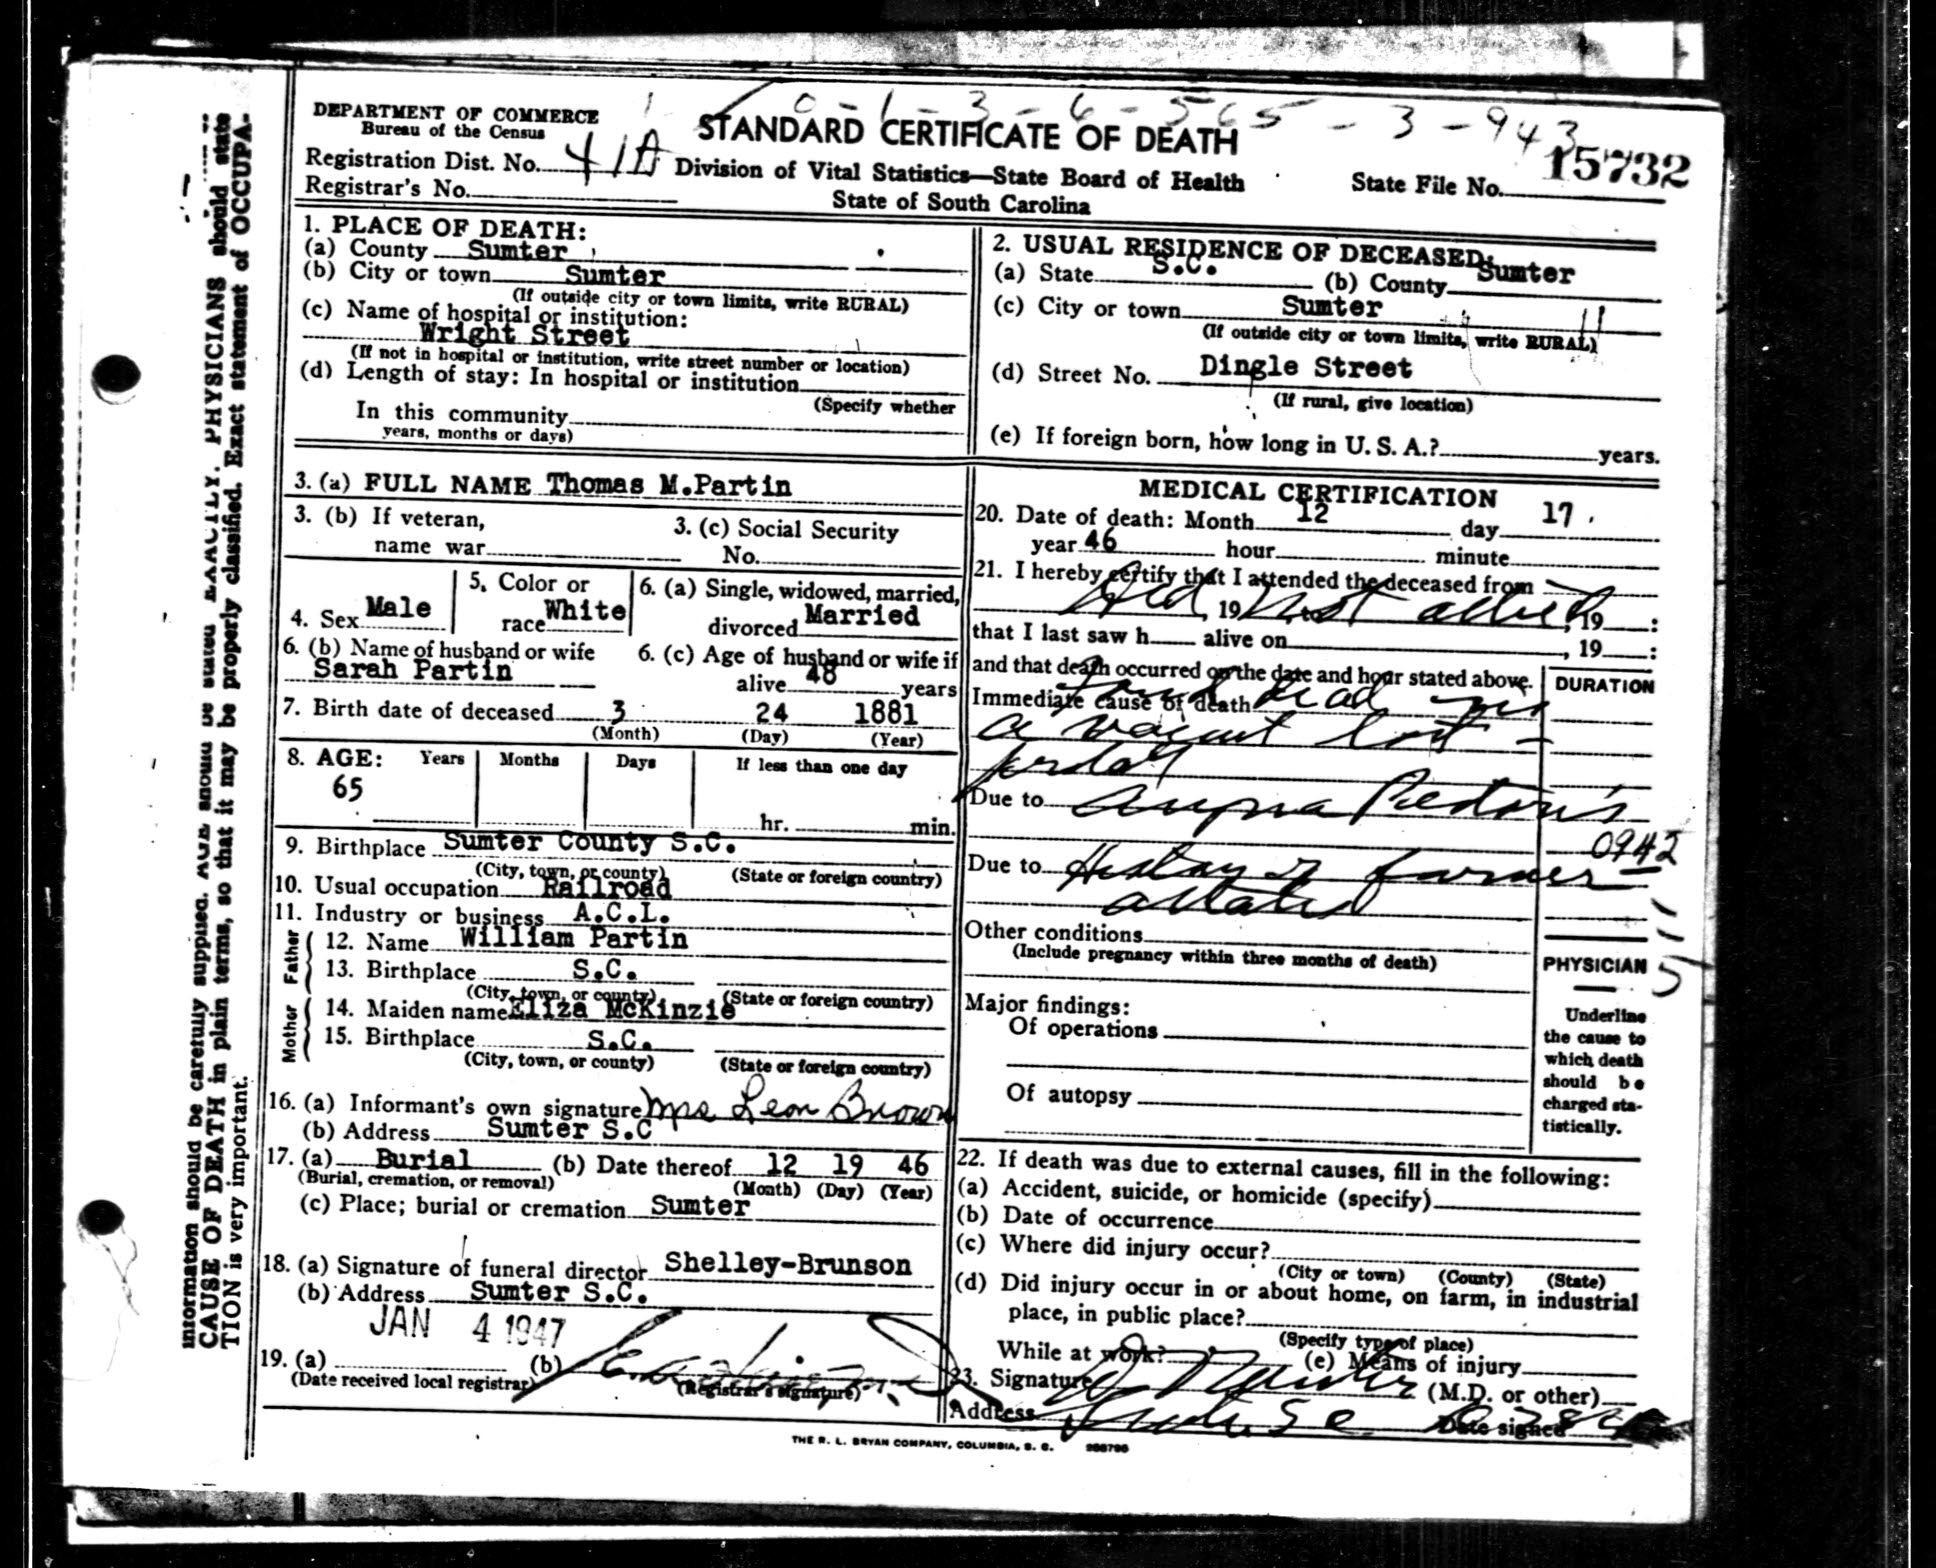 0 - 1 - 3 - 6 - 565 - 3 - 943
DEPARTMENT OF COMMERCE
Bureau of the Census
STANDARD CERTIFICATE OF DEATH
15732
Registration Dist. No. 41A
Division of Vital Statistics—State Board of Health
State File No.
Registrar's No.
State of South Carolina
1. PLACE OF DEATH:
(a) County Sumter
(b) City or town Sumter
(If outside city or town limits, write RURAL)
(c) Name of hospital or institution:
Wright Street
(If not in hospital or institution, write street number or location)
(d) Length of stay: In hospital or institution
(Specify whether
In this community
years, months or days)
2. USUAL RESIDENCE OF DECEASED:
(a) State S.C. (b) County Sumter
(c) City or town Sumter
(If outside city or town limits, write RURAL)
(d) Street No. Dingle Street
(If rural, give location)
(e) If foreign born, how long in U. S. A.? years.
3. (a) FULL NAME Thomas M.Partin
3. (b) If veteran,
name war
3. (c) Social Security
No.
4. Sex Male
5. Color or
race White
6. (a) Single, widowed, married,
divorced Married
6. (b) Name of husband or wife
Sarah Partin
6. (c) Age of husband or wife if
alive 48 years
7. Birth date of deceased 3 24 1881
(Month) (Day) (Year)
8. AGE: Years Months Days If less than one day
65
hr. min.
9. Birthplace Sumter County S.C.
(City, town, or county) (State or foreign country)
10. Usual occupation Railroad
11. Industry or business A.C.L.
Father
12. Name William Partin
13. Birthplace S.C.
(City, town, or county) (State or foreign country)
Mother
14. Maiden name Eliza McKinzie
15. Birthplace S.C.
(City, town, or county) (State or foreign country)
16. (a) Informant's own signature Mrs Leon Brown
(b) Address Sumter S.C
17. (a) Burial (b) Date thereof 12 19 46
(Burial, cremation, or removal) (Month) (Day) (Year)
(c) Place; burial or cremation Sumter
18. (a) Signature of funeral director Shelley-Brunson
(b) Address Sumter S.C.
JAN 4 1947
19. (a) (b)
(Date received local registrar) (Registrar's signature)
MEDICAL CERTIFICATION
20. Date of death: Month 12 day 17.
year 46 hour minute
21. I hereby certify that I attended the deceased from
Did, 19 not attend, 19 :
that I last saw h alive on , 19 :
and that death occurred on the date and hour stated above.
DURATION
Immediate cause of death found dead in
a vacant lot -
Due to Angina Pectoris
0942
Due to History of former
attacks
Other conditions
(Include pregnancy within three months of death)
PHYSICIAN
Underline
the cause to
which death
should be
charged sta-
tistically.
Major findings:
Of operations
Of autopsy
22. If death was due to external causes, fill in the following:
(a) Accident, suicide, or homicide (specify)
(b) Date of occurrence
(c) Where did injury occur?
(City or town) (County) (State)
(d) Did injury occur in or about home, on farm, in industrial
place, in public place?
(Specify type of place)
While at work? (e) Means of injury
23. Signature (M.D. or other)
Address Date signed
THE R. L. BRYAN COMPANY, COLUMBIA, S. C.
information should be carefully supplied. AGE should be stated EXACTLY. PHYSICIANS should state
CAUSE OF DEATH in plain terms, so that it may be properly classified. Exact statement of OCCUPA-
TION is very important.